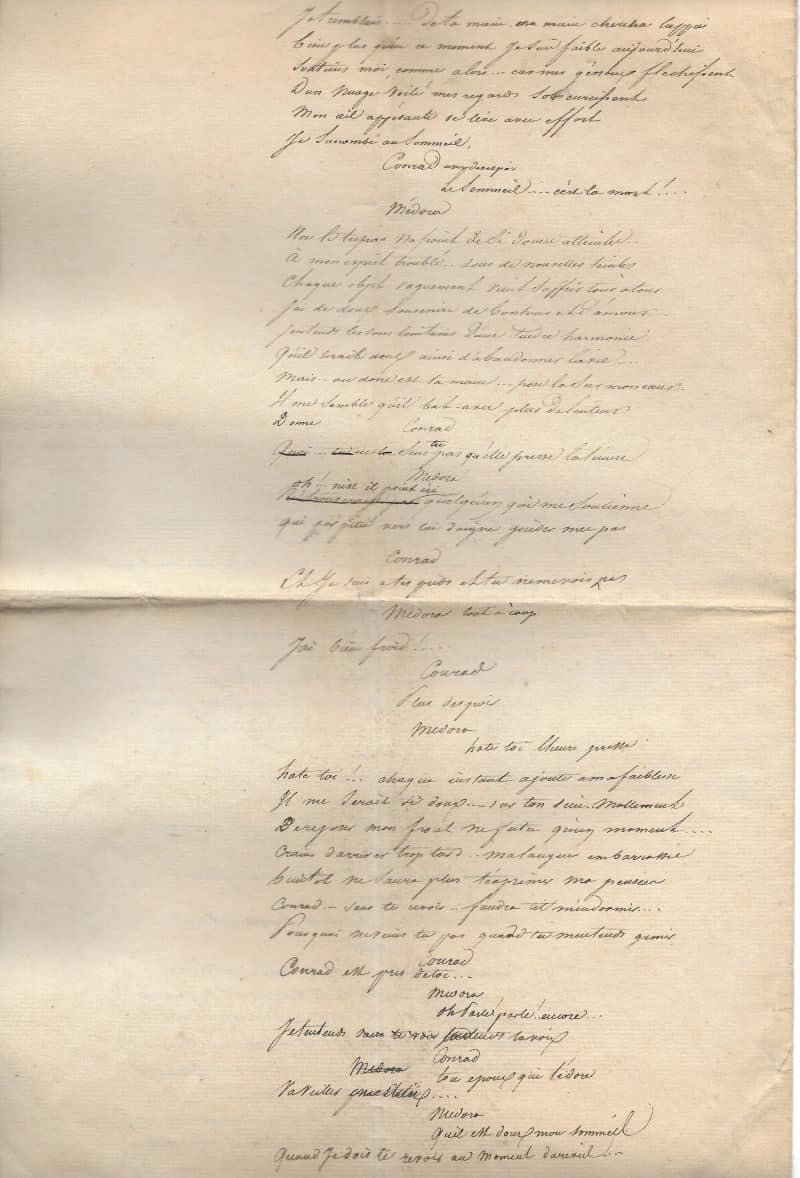 Je tremblais.... de ta main ma main chercha l'appui
bien plus qu'en ce moment Je suis faible aujourd'hui
Soutiens moi, comme alors... car mes genoux flechissent
D'un Nuage voilé mes regards Sobscurcissent
Mon œil appésanti se lève avec effort
Je Succombe au Sommeil,
Conrad avec desespoir
Le Sommeil.... c'est la mort!....
Médora
Non le trepas Na point de Si douces atteintes..
À mon esprit troublé.. sous de nouvelles teintes
Chaque objet vaguement vient S'offrir tour a tour
J'ai de doux souvenirs de bonheur et d'amour...
J'entends les sons lointains d'une harmonie
Qu'il serait doux ainsi d'abandonner la vie....
Mais.. ou donc est ta main... pose la Sur mon cœur..
Il me Semble qu'il bat avec plus de lenteur
Donne Conrad
Sens tu pas qu'elle presse la tienne
Medora
oh!! n'est il point ici quelqu'un qui me Soutienne
qui par pitié vers lui daigne guider mes pas
Conrad
Eh Je suis a tes pieds et tu ne me vois pas
Médora tout à coup
J'ai bien froid!....
Conrad
Plus d'espoir
Medora
hate toi l'heure presse
hate toi!.. chaque instant ajoute a ma faiblesse
Il me Serait si doux... sur ton Sein.. Mollement
De reposer mon front ne fut ce qu'un moment....
Crains d'arriver trop tard.. ma langue embarrassée
bientot ne Saura plus t'exprimer ma pensée
Conrad.. sans te revoir.. faudra t'il m'endormir....
Pourquoi ne viens tu pas quand tu m'entends gemir
Conrad
Conrad est pres de toi...
Medora
oh Parle! parle! encore...
Je t'entends sans te voir ta voix
Medora Conrad
ton epoux qui t'adore
....
Medora
Qu'il est doux mon sommeil
Quand Je dois te revoir au Moment du reveil!..